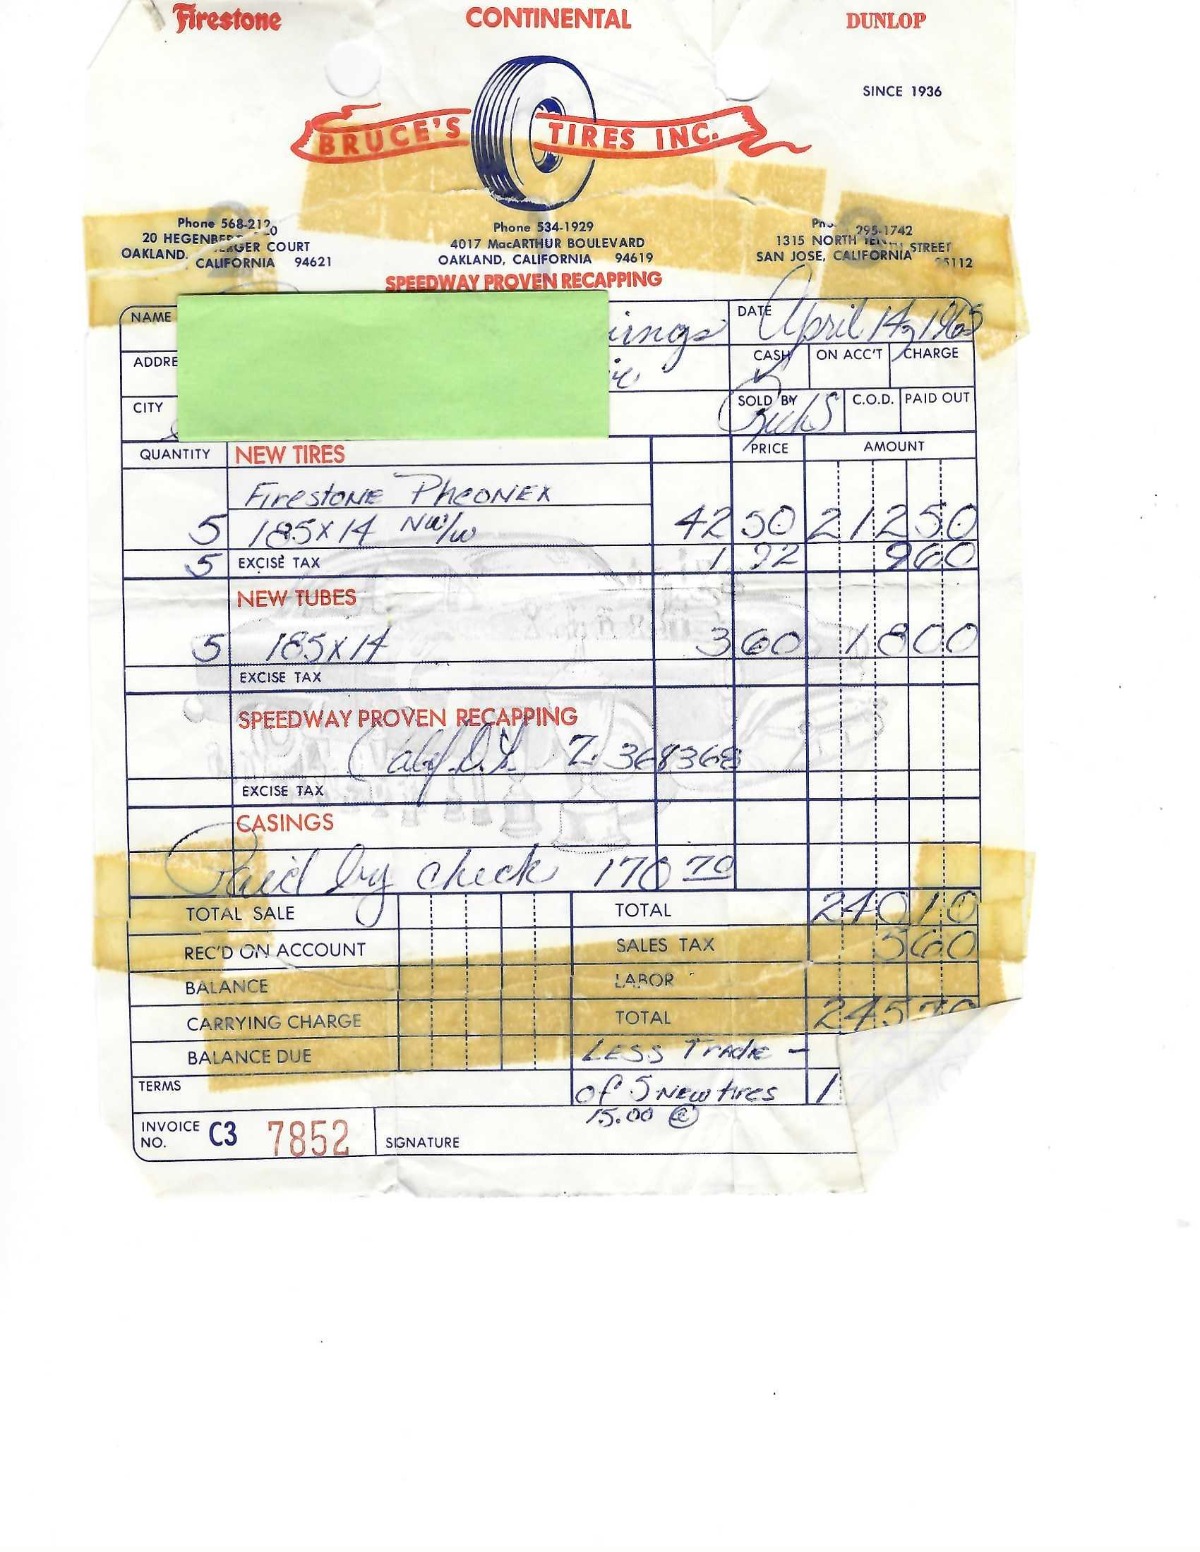 Firestone CONTINENTAL DUNLOP
SINCE 1936
BRUCE'S TIRES INC.
Phone 568-2120 Phone 534-1929 295-1742
20 HEGENBERGER COURT 4017 MacARTHUR BOULEVARD 1315 NORTH TENTH STREET
OAKLAND, CALIFORNIA 94621 OAKLAND, CALIFORNIA 94619 SAN JOSE, CALIFORNIA 95112
SPEEDWAY PROVEN RECAPPING
NAME DATE April 14, 1965
ADDRE CASH ✓ ON ACC'T CHARGE
CITY SOLD BY C.O.D. PAID OUT
QUANTITY NEW TIRES PRICE AMOUNT
Firestone Pheonex
5 185x14 NW/W 42 50 212 50
5 EXCISE TAX 1 92 9 60
NEW TUBES
5 185x14 3 60 18 00
EXCISE TAX
SPEEDWAY PROVEN RECAPPING
Calif. D.L. Z 368368
EXCISE TAX
CASINGS
Paid by check 170 70
TOTAL SALE TOTAL 240 10
REC'D ON ACCOUNT SALES TAX 5 60
BALANCE LABOR
CARRYING CHARGE TOTAL 245 70
BALANCE DUE Less Trade -
TERMS of 5 New tires
15.00 @
INVOICE NO. C3 7852 SIGNATURE